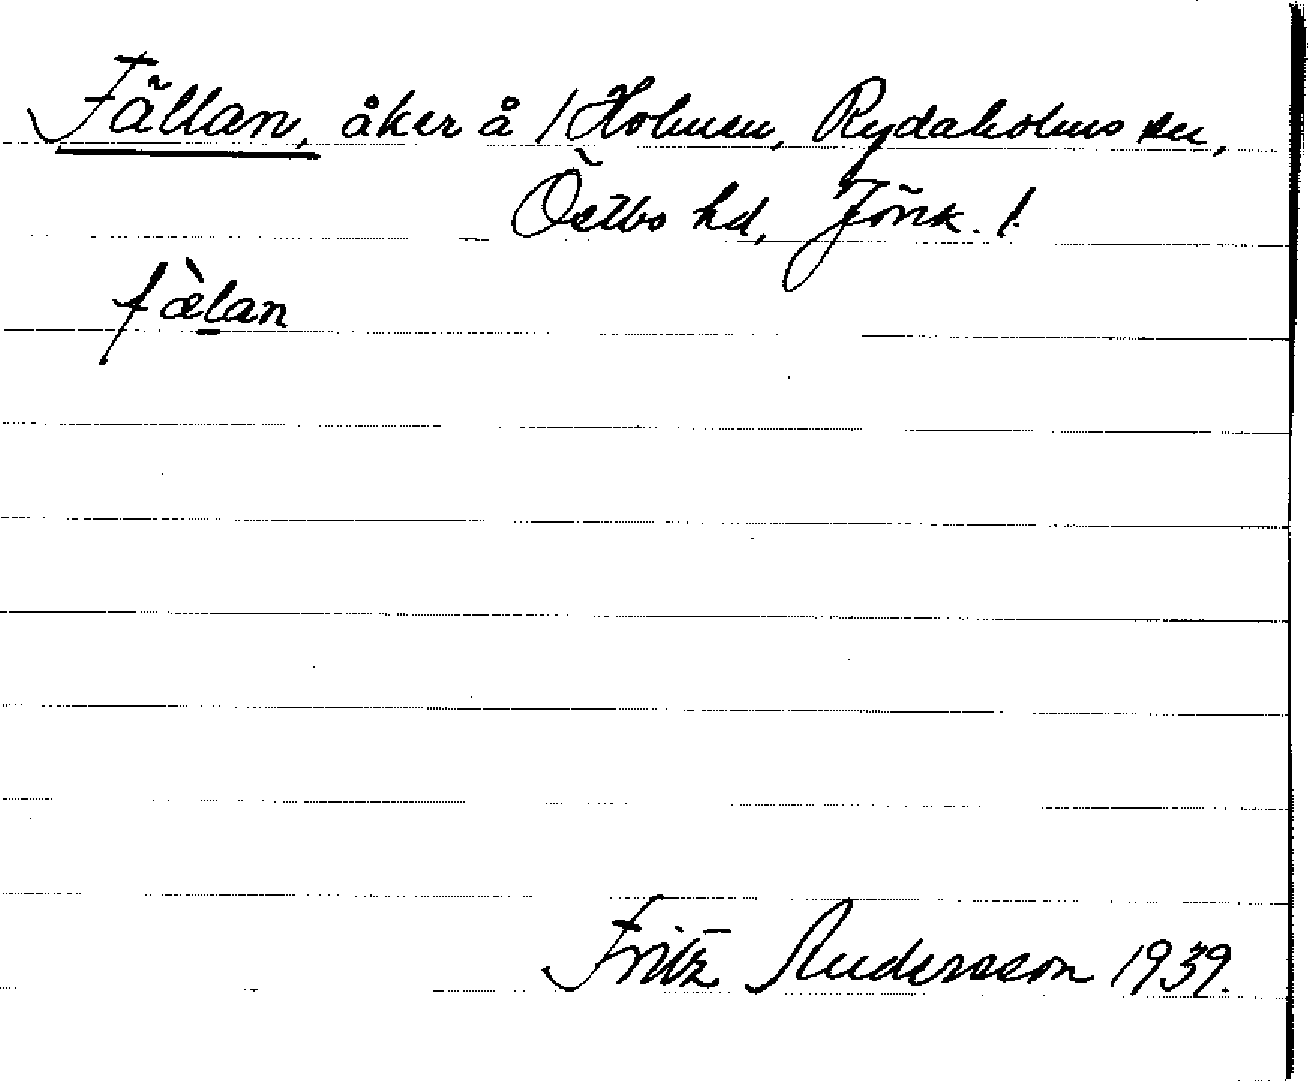 Fällan, åker å /Holmen, Rydaholms sn,
Östbo hd, Jönk. l.
fæ̀lan
Fritz Andersson 1939.